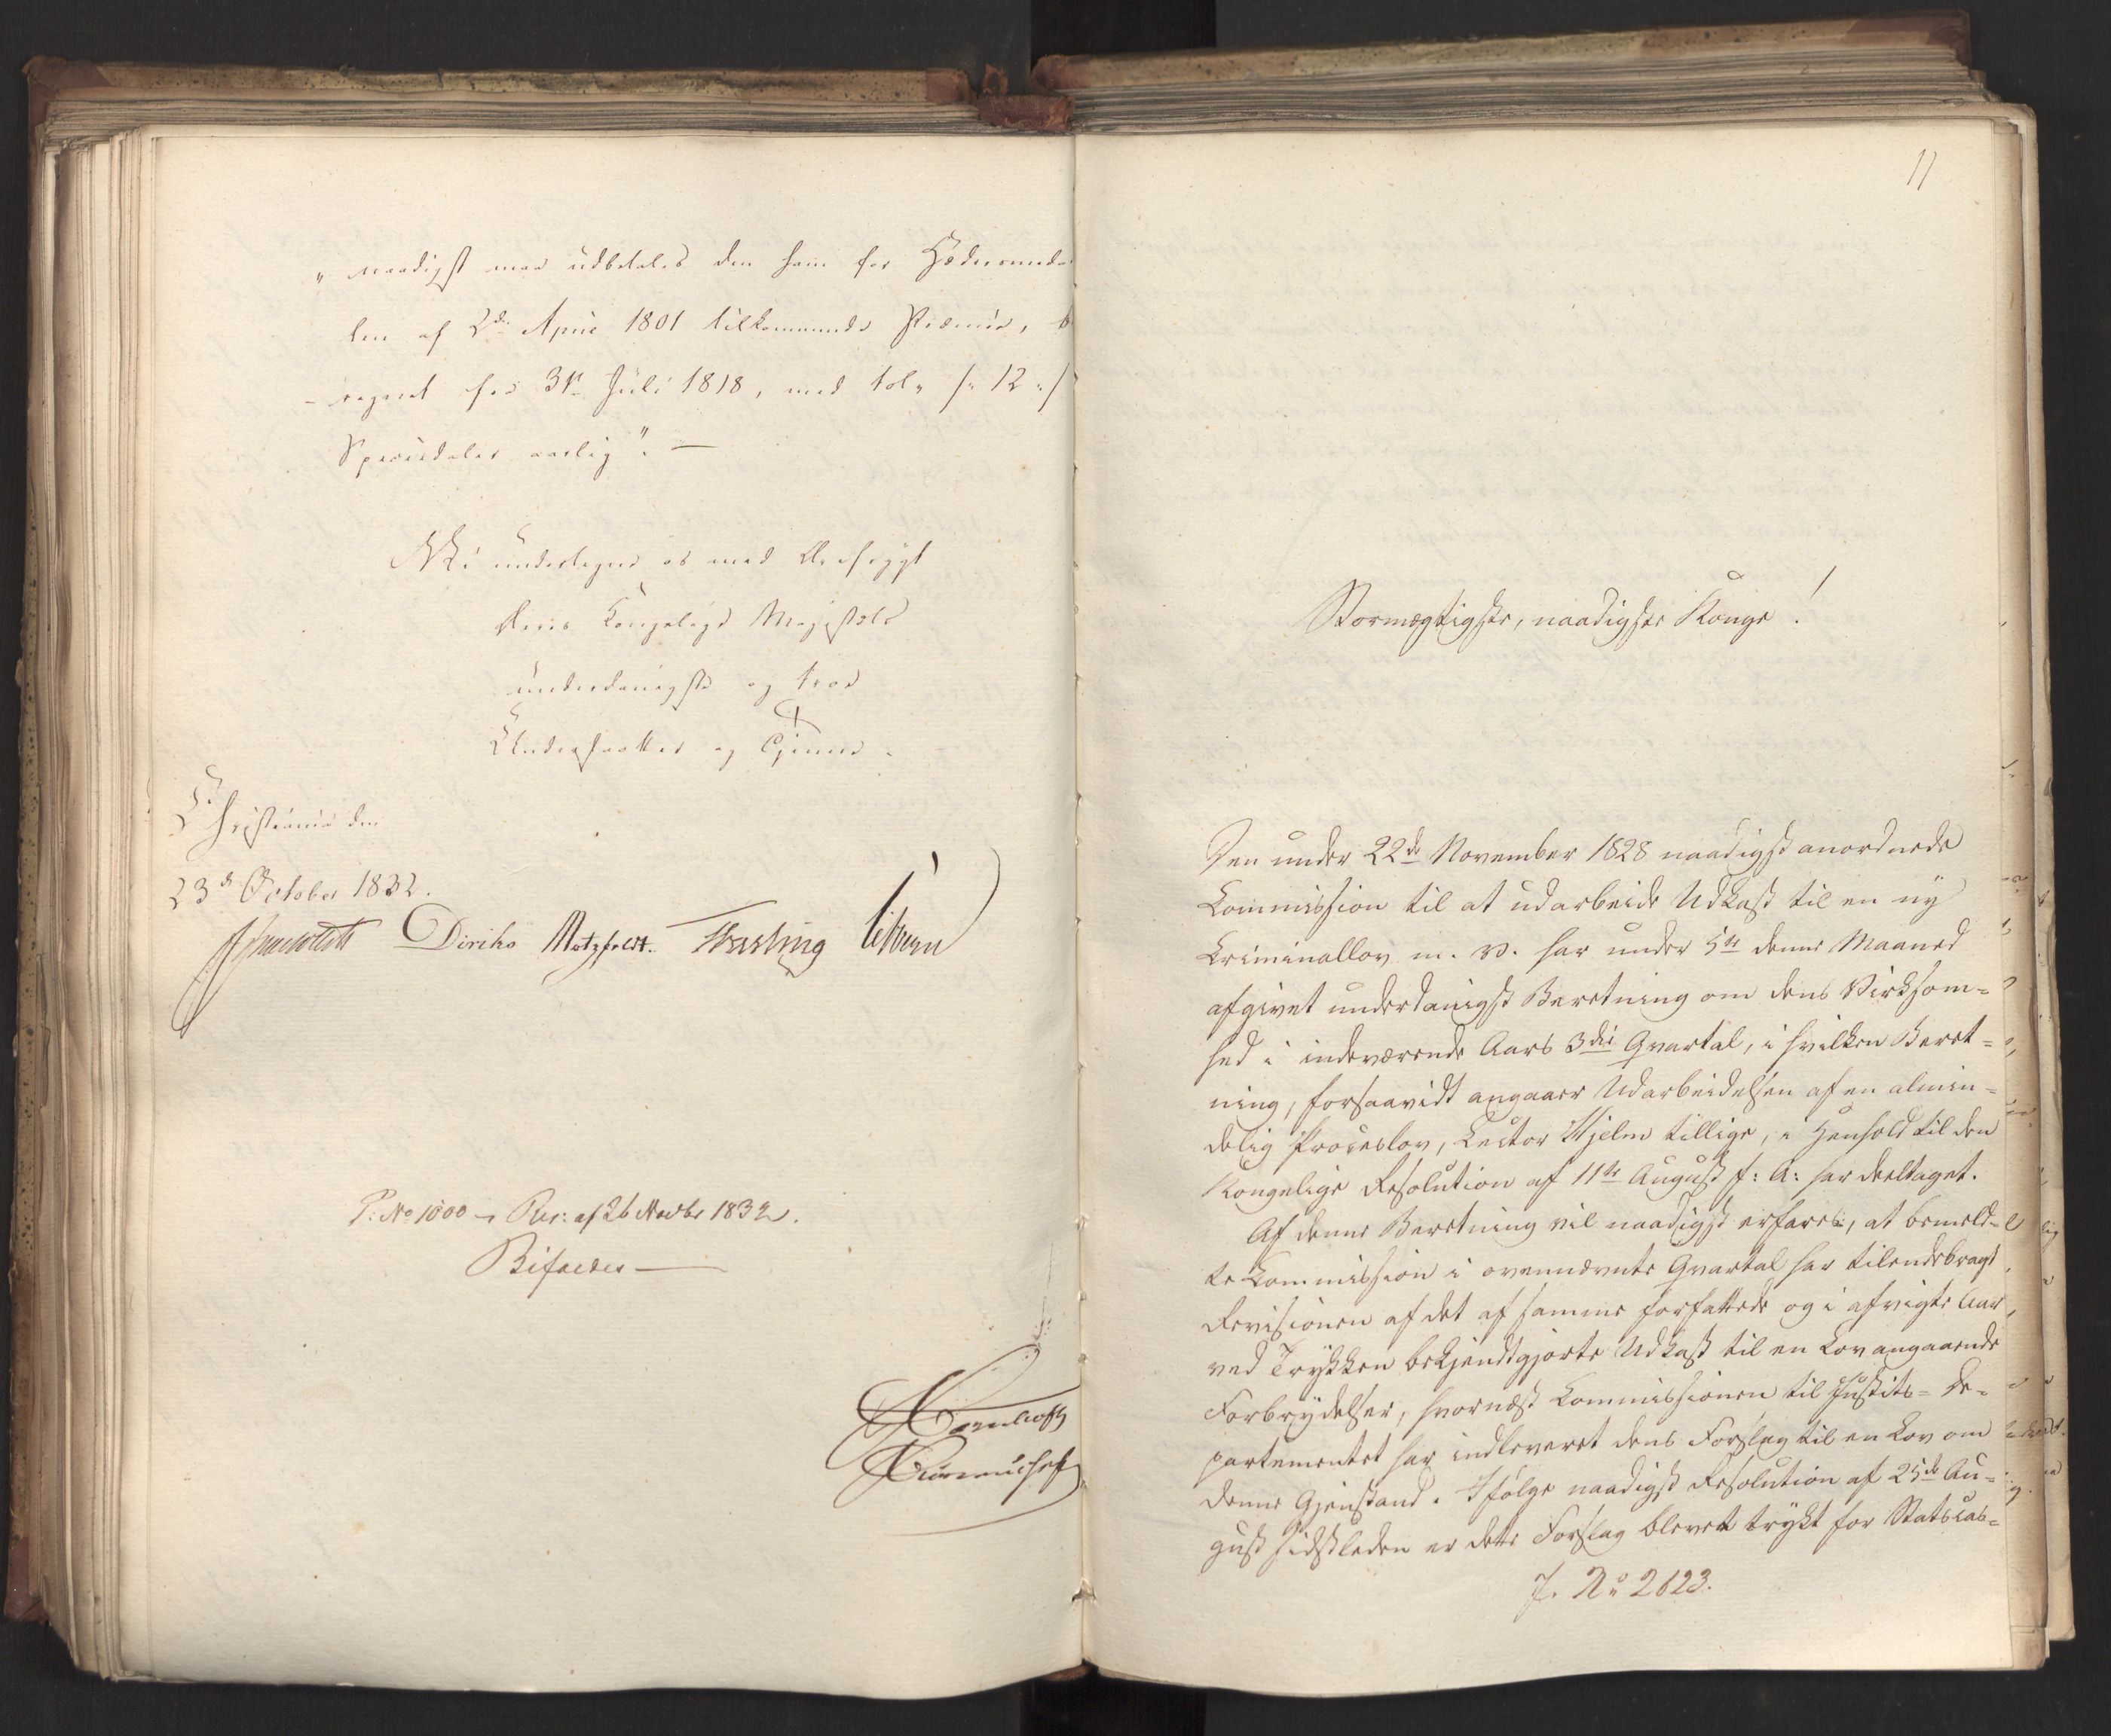 „naadigst maa udbetales den ham for Hædersmeda
len af 2de April 1801 tilkommende Præmie, b
-regnet fra 31te Juli 1818, med tolv /: 12 :/
Speciedaler aarlig". —
Vi undertegne os med Ærefrygt
Deres Kongelige Majestæts
underdanigste og troe
Undersaatter og Tjenere.
Christiania den
23de October 1832.
Diriks Motzfeldt. Fasting
P: No 1000 – Res: af 26 Novbr 1832.
Bifaldes —
11
Stormægtigste, naadigste Konge!
Den under 22de November 1828 naadigst anordnede
Commission til at udarbeide Udkast til en ny
Criminallov m. v. har under 5te denne Maaned
afgivet underdanigst Beretning om dens Virksom=
hed i indeværende Aars 3die Qvartal, i hvilken Beret=
ning, forsaavidt angaaer Udarbeidelsen af en almin=
delig Proceslov, Lector Hjelm tillige, i Henhold til den
Kongelige Resolution af 11te August f: A: har deeltaget.
Af denne Beretning vil naadigst erfares, at bemeld=
te Commission i ovennævnte Qvartal har tilendebragt
Revisionen af det af samme forfattede og i afvigte Aar
ved Trykken bekjendtgjorte Udkast til en Lov angaaende
Forbrydelser, hvornæst Commissionen til Justits= De=
partementet har indleveret dens Forslag til en Lov om
denne Gjenstand. Ifølge naadigst Resolution af 25de Au=
gust sidstleden er dette Forslag blevet trykt for Statscas=
J. No 2623.